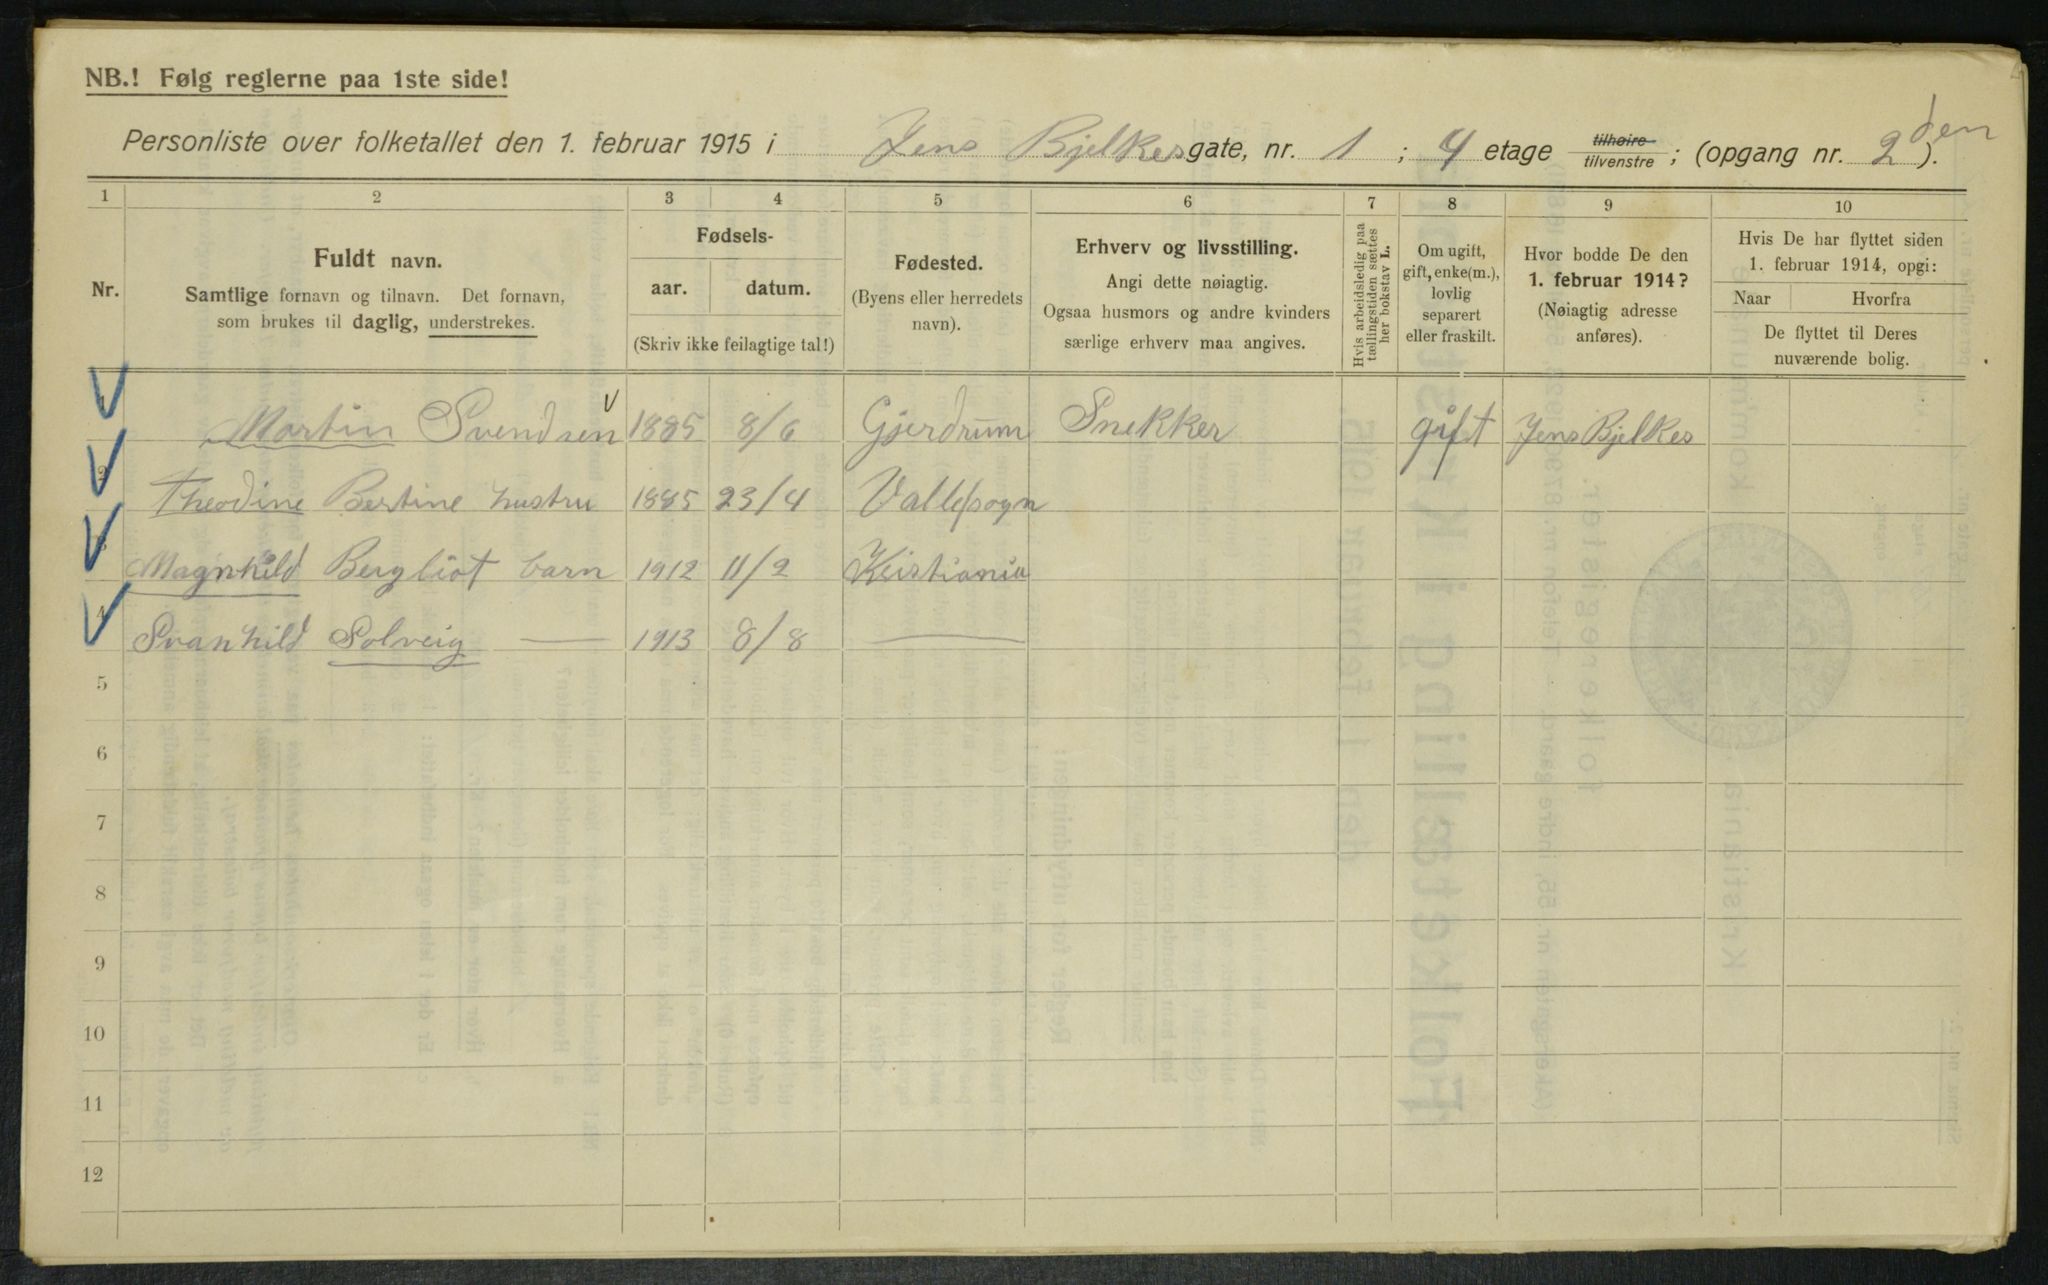 NB.! Følg reglerne paa 1ste side!
Personliste over folketallet den 1. februar 1915 i Jens Bjelkes gate, nr. 1 ; 4 etage tilhøire tilvenstre ; (opgang nr. 2den ).
1 2 3 4 5 6 7 8 9 10
Nr.
Fuldt navn.
Samtlige fornavn og tilnavn. Det fornavn,
som brukes til daglig, understrekes.
Fødsels-
aar. datum.
(Skriv ikke feilagtige tal!)
Fødested.
(Byens eller herredets
navn).
Erhverv og livsstilling.
Angi dette nøiagtig.
Ogsaa husmors og andre kvinders
særlige erhverv maa angives.
Hvis arbeidsledig paa
tællingstiden sættes
her bokstav L.
Om ugift,
gift, enke(m.),
lovlig
separert
eller fraskilt.
Hvor bodde De den
1. februar 1914?
(Nøiagtig adresse
anføres).
Hvis De har flyttet siden
1. februar 1914, opgi:
Naar Hvorfra
De flyttet til Deres
nuværende bolig.
1 Martin Svendsen 1885 8/6 Gjerdrum Snekker gift Jens Bjelkes
2 Theodine Bertine hustru 1885 23/4 Vallesogn
3 Magnhild Bergliot barn 1912 11/2 Kristiania
4 Svanhild Solveig — 1913 8/8 —
5
6
7
8
9
10
11
12